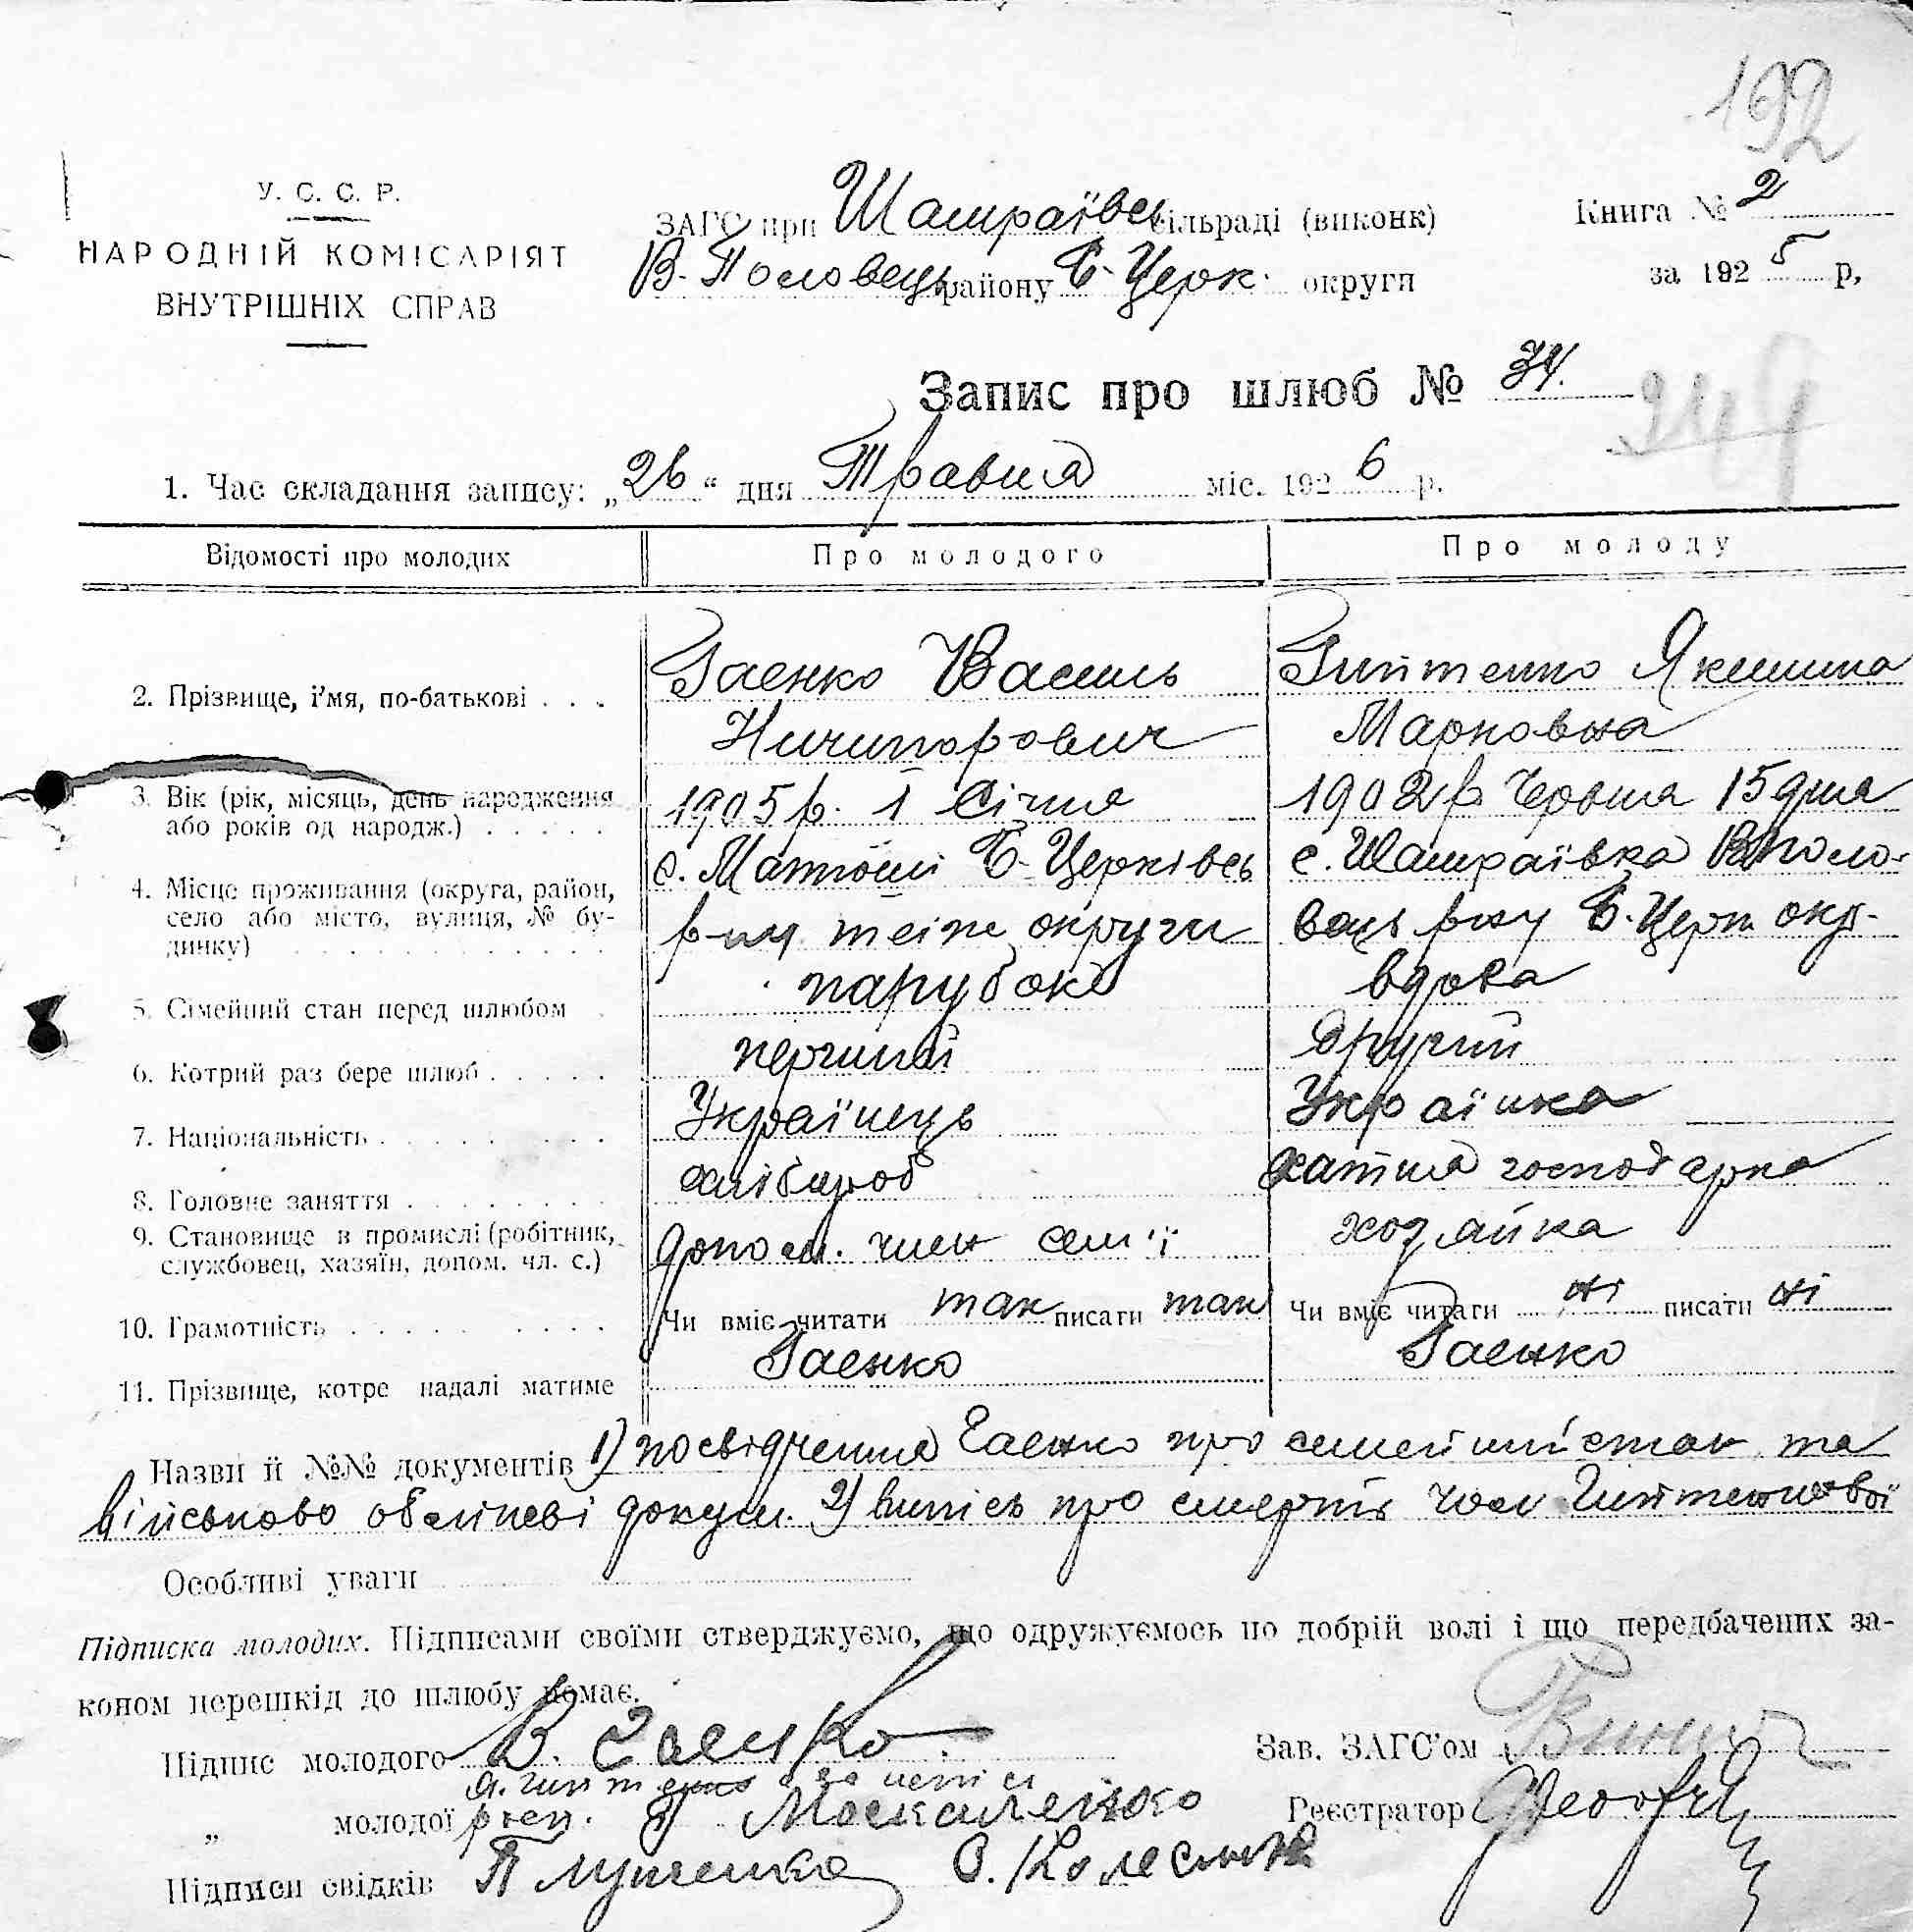 192
У. С. С. Р.
НАРОДНІЙ КОМІСАРІЯТ
ВНУТРІШНІХ СПРАВ
ЗАГС при Шамраївсь сільраді (виконк)
В-Половець району Б-Церк. округи
Книга № 2
за 1925 р,
Запис про шлюб № 34.
244
1. Час складання запису: „26“ дня Травня міс. 1926 р.
Відомості про молодих Про молодого Про молоду
2. Прізвище, і'мя, по-батькові . . . Гаенко Василь Гийтенко Якилина
Ничипорович Марковна
3. Вік (рік, місяць, день народження 1905 р. 1 Січня 1902 р Червня 15 дня
або років од народж.) . . . . .
4. Місце проживання (округа, район, с. Матюші Б-Церківсь с. Шамраївка ВПоло-
село або місто, вулиця, № бу- р-ну теїже округи вець р-ну Б.-Церк окр-
динку) . . . . . . . . . . .
5. Сімейний стан перед шлюбом . парубок вдова
6. Котрий раз бере шлюб . . . . . перший другий
7. Національність . . . . . . . . Українець Українка
8. Головне заняття . . . . . . . . хлібороб хатня господарка
9. Становище в промислі (робітник, допом. член сем'ї хозяйка
службовец, хазяїн, допом. чл. с.)
10. Грамотність . . . . . . . . Чи вміє читати так писати так Чи вміє читати ні писати ні
11. Прізвище, котре надалі матиме Гаенко Гаенко
Назви й №№ документів 1) посвідчення Гаенко про семейний стан та
військово облікові докум. 2) випісь про смерть чол Гийтенкової
Особливі уваги
Підписка молодих. Підписами своїми стверджуємо, що одружуємось по добрій волі і що передбачених за-
коном перешкід до шлюбу немає.
Підпис молодого В. Гаенко. Зав. ЗАГС'ом
Я. Гийтенко за неписм
„ молодої расп. Москаленко Реєстратор
Підписи свідків О. Колесник